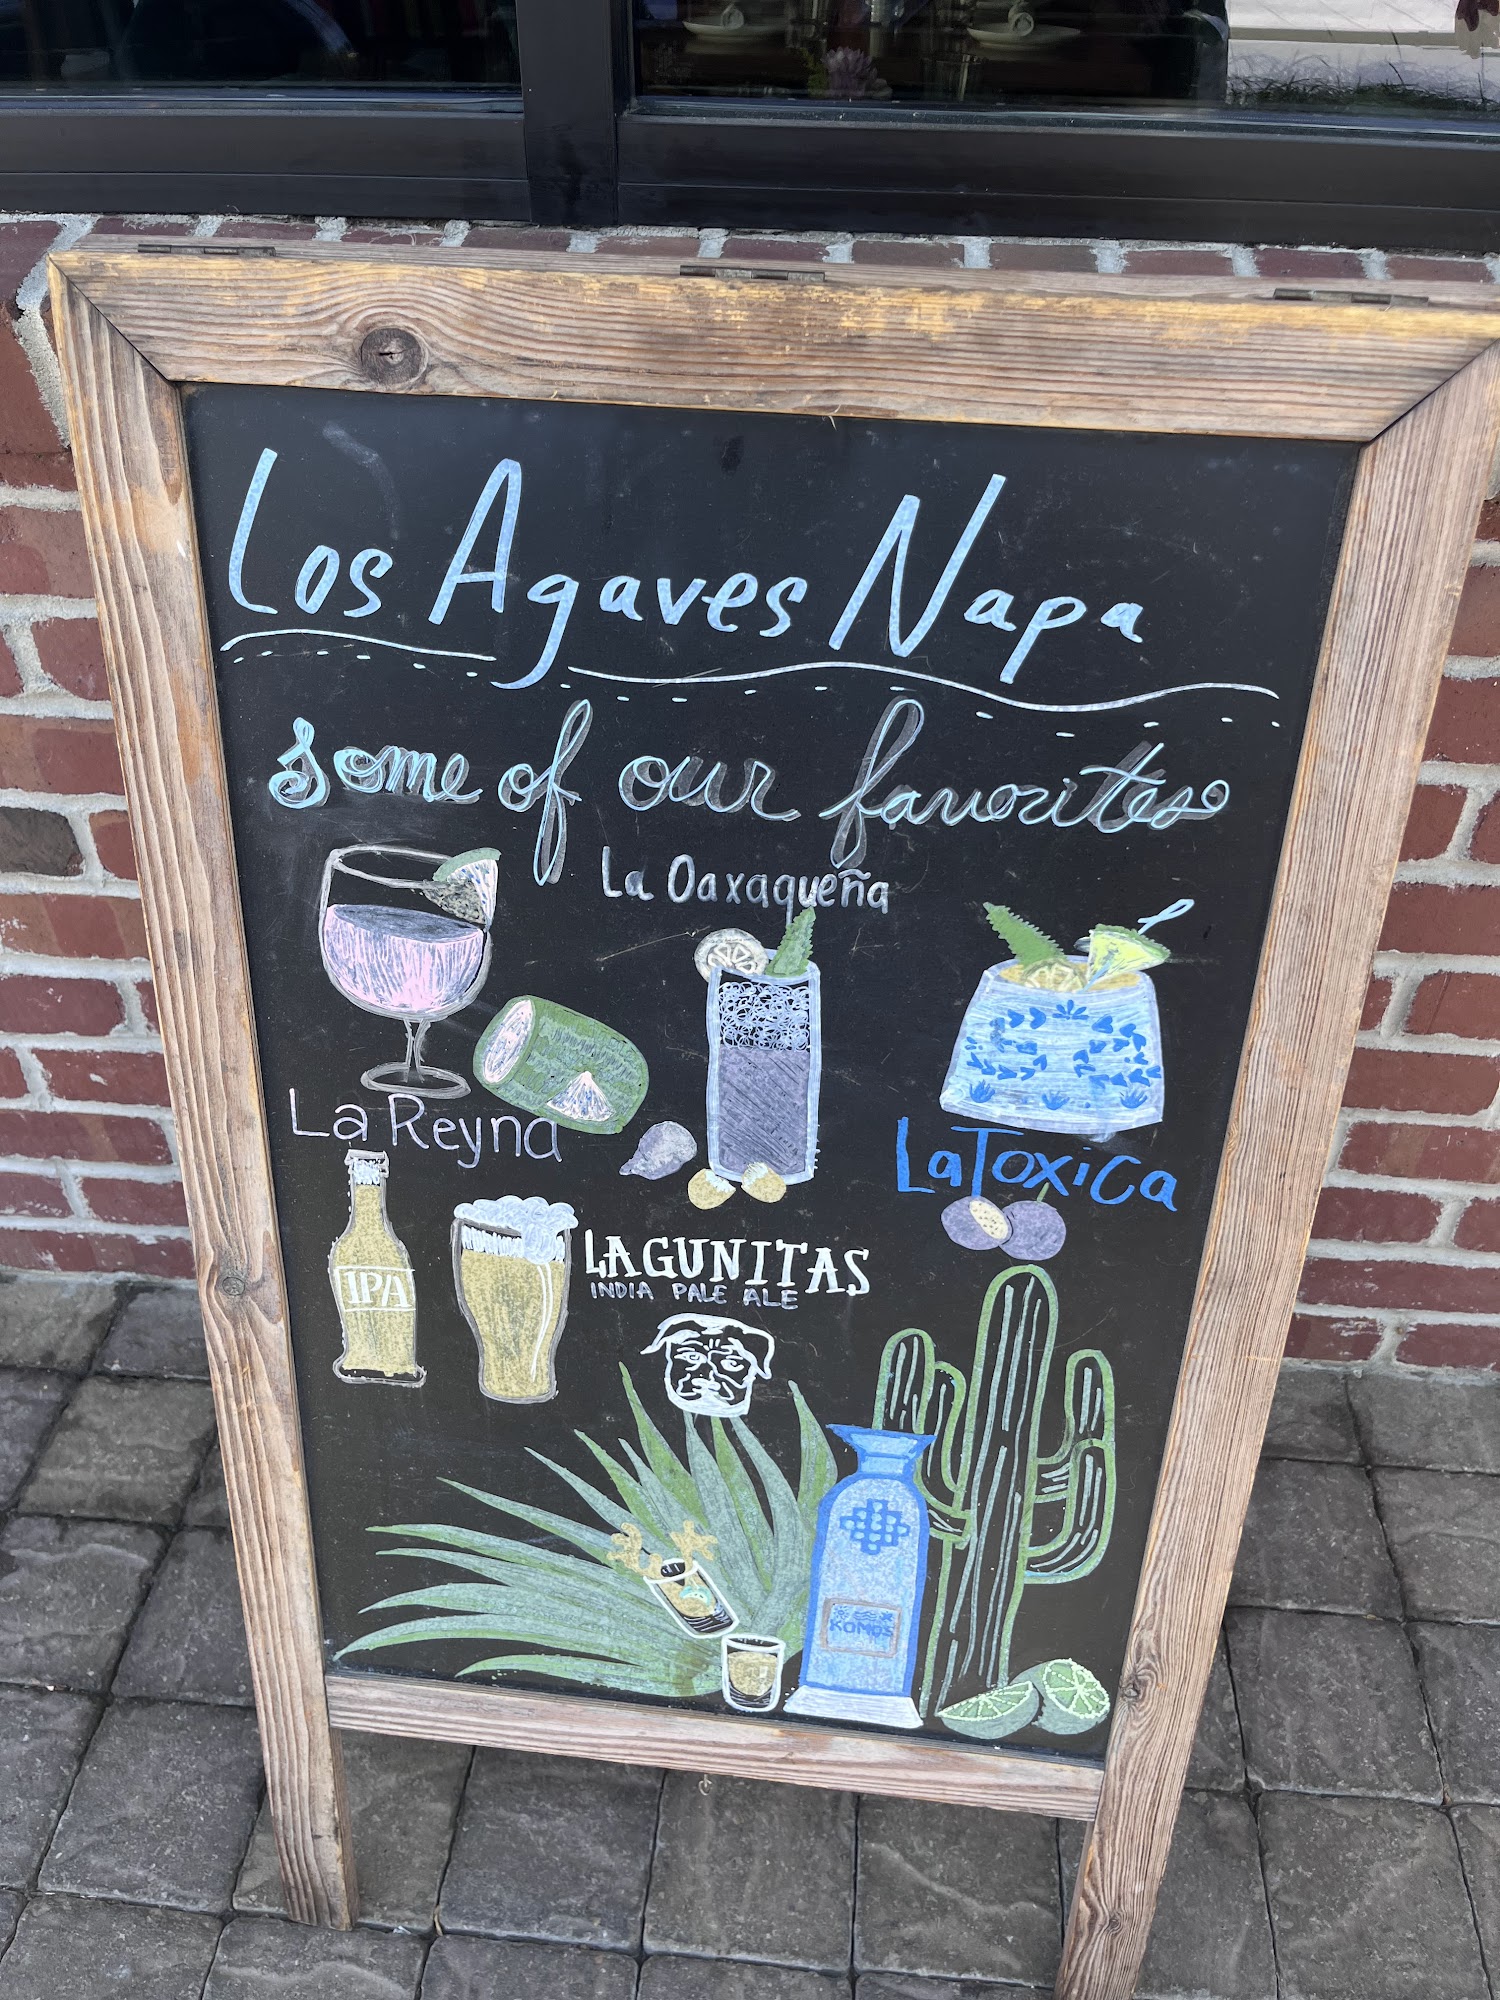 Los Agaves Napa
some of our favorites
La Oaxaqueña
La Reyna
La Toxica
IPA
LAGUNITAS
INDIA PALE ALE
KOMOS